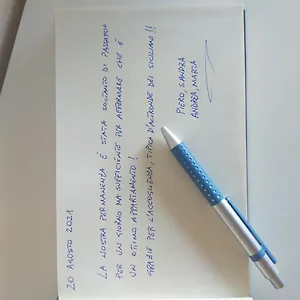 20 AGOSTO 2021
LA NOSTRA PERMANENZA È STATA SOLTANTO DI PASSAGGIO
PER UN GIORNO MA SUFFICIENTE PER AFFERMARE CHE È
UN OTTIMO APPARTAMENTO!
GRAZIE PER L'ACCOGLIENZA, TIPICA D'ALTRONDE DEI SICILIANI!!
PIERO, SANDRA
ANDREA, MARTA